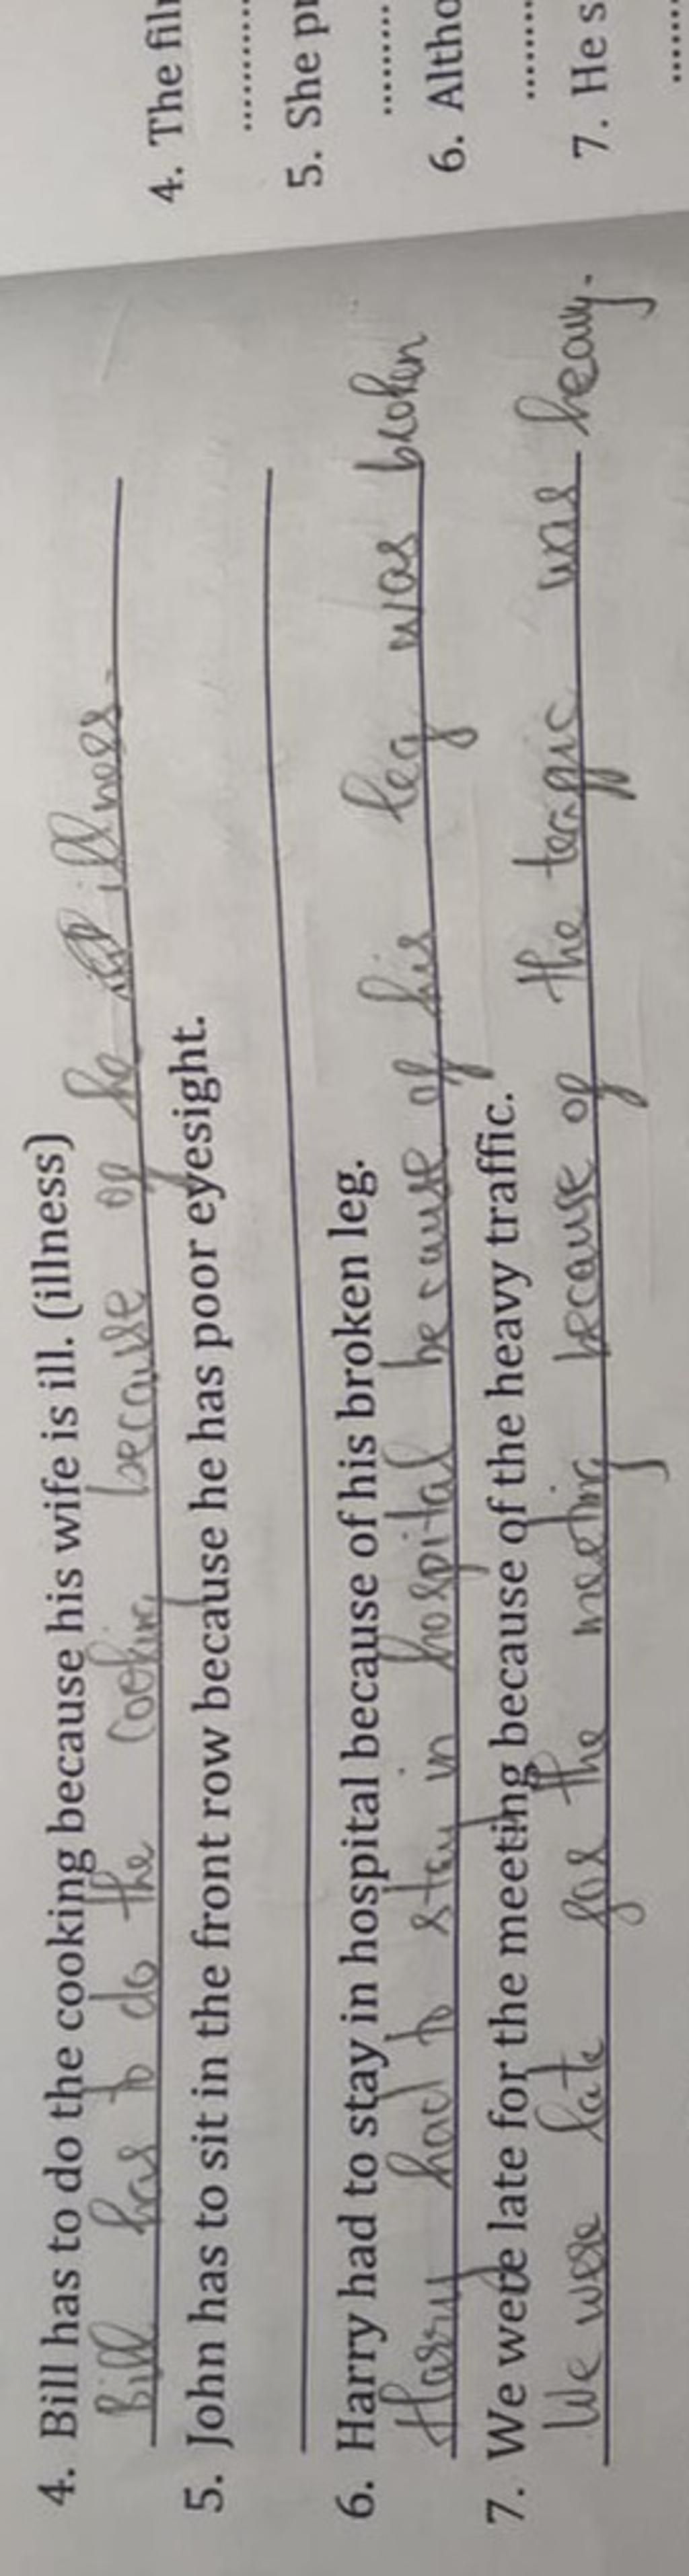 4. Bill has to do the cooking because his wife is ill. (illness)
Bill has to do the cooking because of he illness.
5. John has to sit in the front row because he has poor eyesight.
6. Harry had to stay in hospital because of his broken leg.
Harry had to stay in hospital because of his leg was broken
7. We were late for the meeting because of the heavy traffic.
We were late for the meeting because of the traffic was heavy.
4. The
5. She
6.
7. He